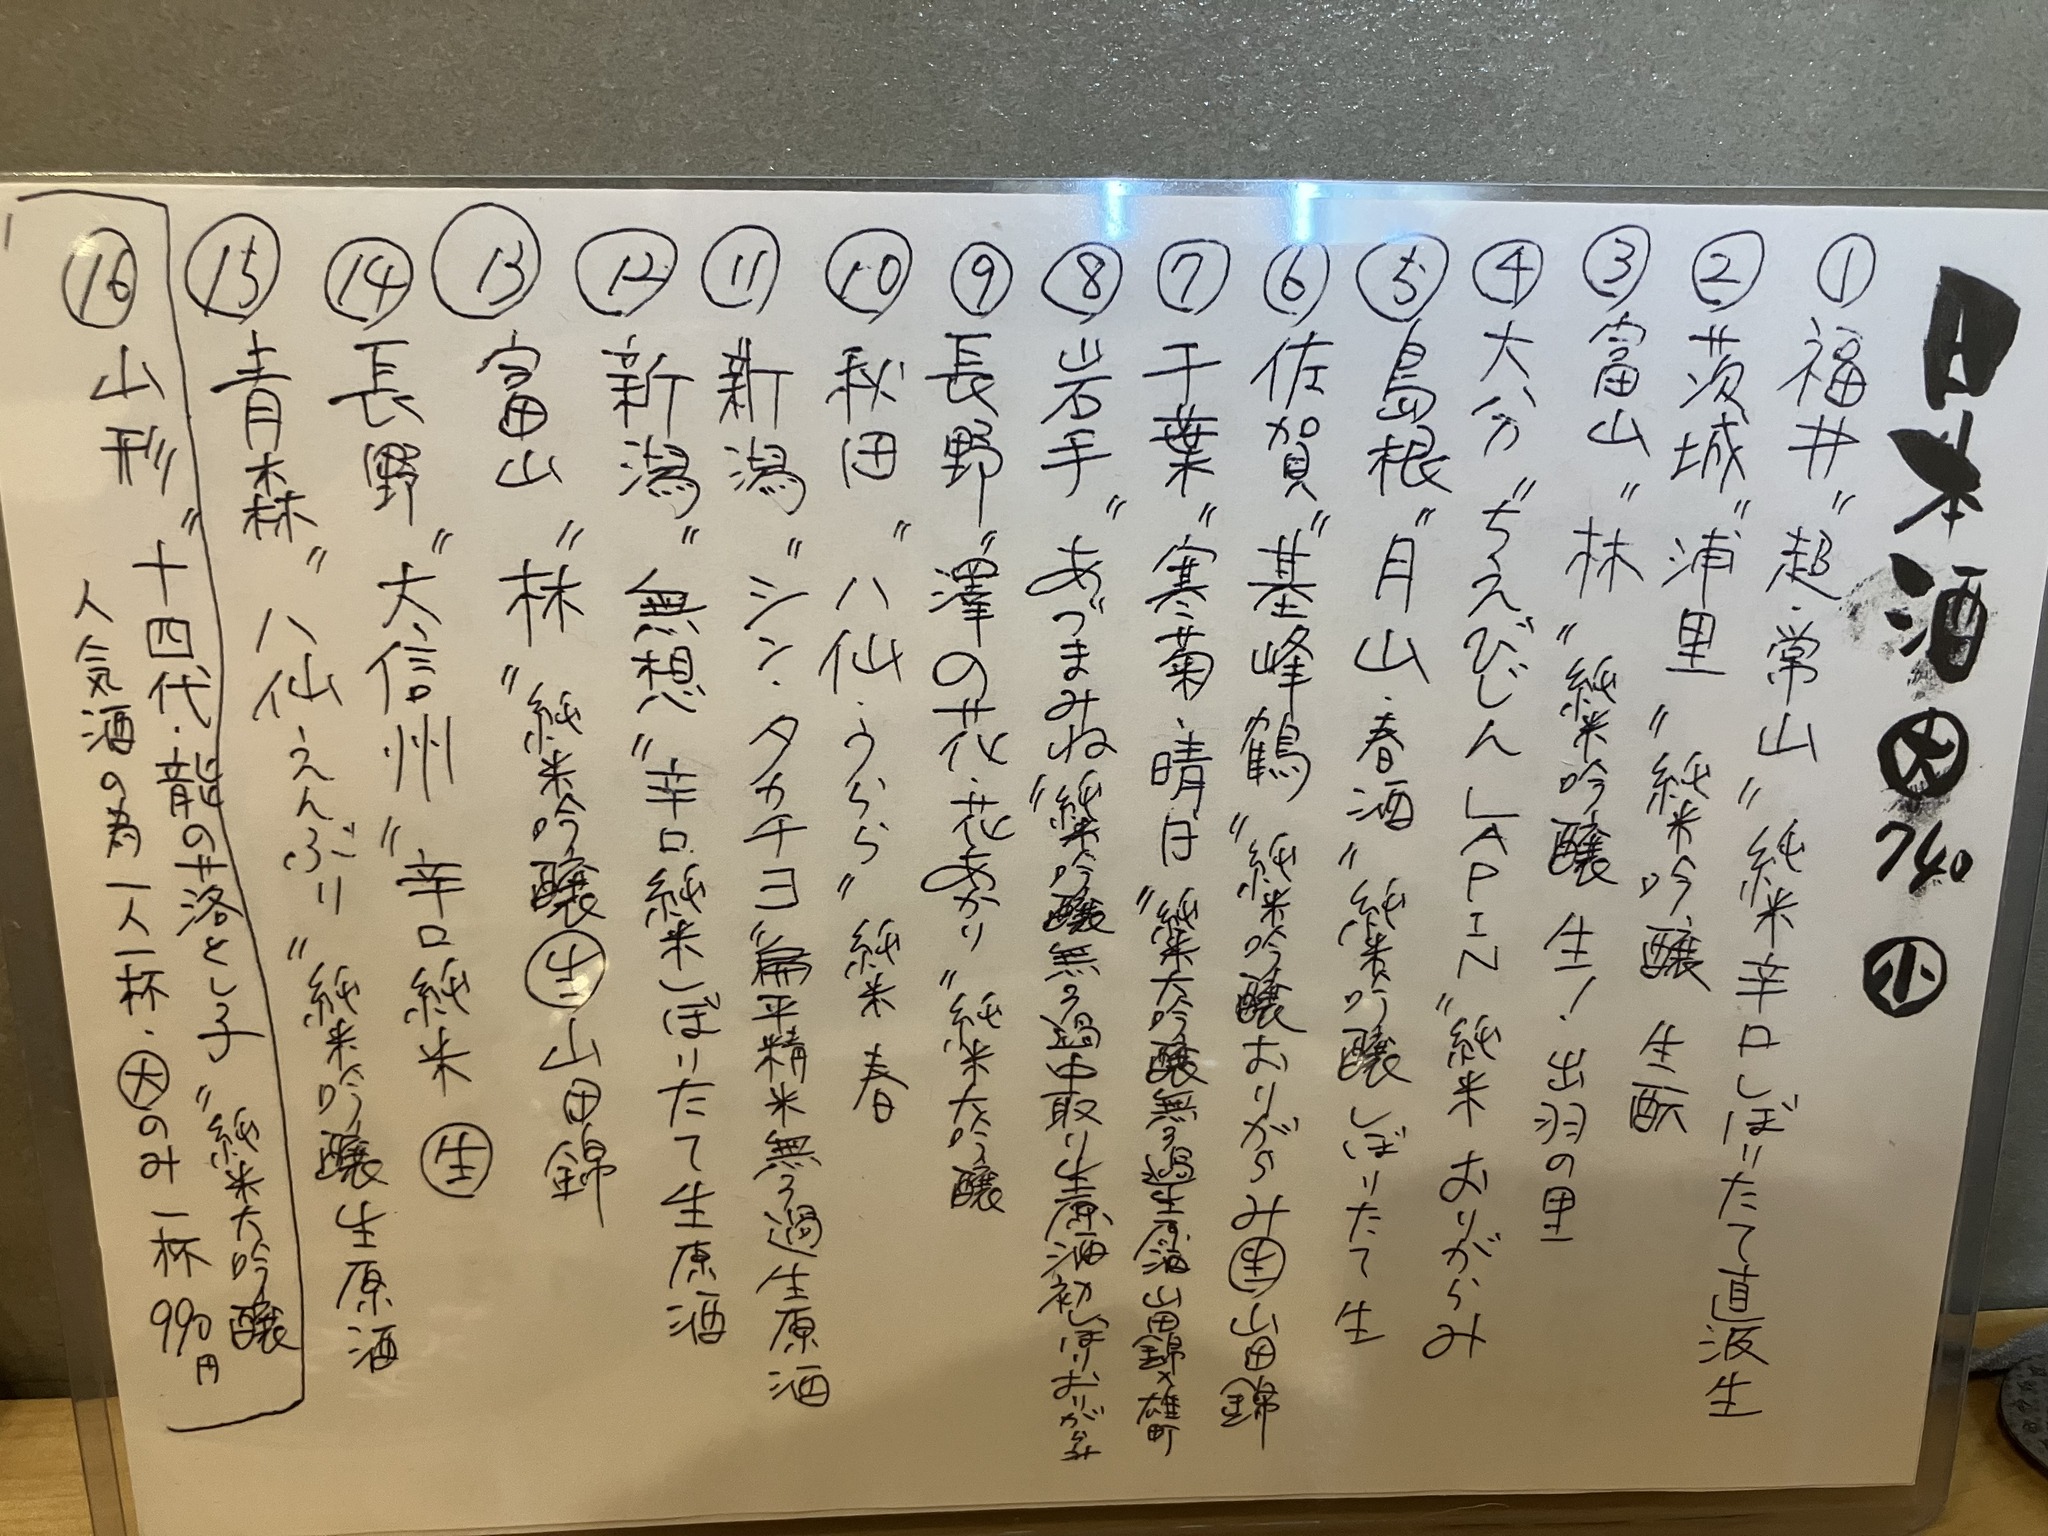 日本酒 ㊛大 740 小
① 福井 "超・常山" 純米辛口しぼりたて直汲生
② 茨城 "浦里" 純米吟醸 生酛
③ 富山 "林" 純米吟醸 生!・出羽の里
④ 大分 "ちえびじん LAPIN" 純米 おりがらみ
⑤ 島根 "月山・春酒" 純米吟醸 しぼりたて 生
⑥ 佐賀 "基峰鶴" 純米吟醸おりがらみ 生 山田錦
⑦ 千葉 "寒菊・晴日" 純米大吟醸無ろ過生原酒 山田錦×雄町
⑧ 岩手 "あづまみね" 純米吟醸無ろ過中取り生原酒初しぼりおりがらみ
⑨ 長野 "澤の花・花あかり" 純米大吟醸
⑩ 秋田 "八仙・うらら" 純米 春
⑪ 新潟 "シン・タカチヨ" 扁平精米無ろ過生原酒
⑫ 新潟 "無想" 辛口純米しぼりたて生原酒
⑬ 富山 "林" 純米吟醸 生 山田錦
⑭ 長野 "大信州" 辛口純米 生
⑮ 青森 "八仙・えんぶり" 純米吟醸生原酒
⑯ 山形 "十四代・龍の落とし子" 純米大吟醸
人気酒の為 一人一杯・大のみ 一杯 990円